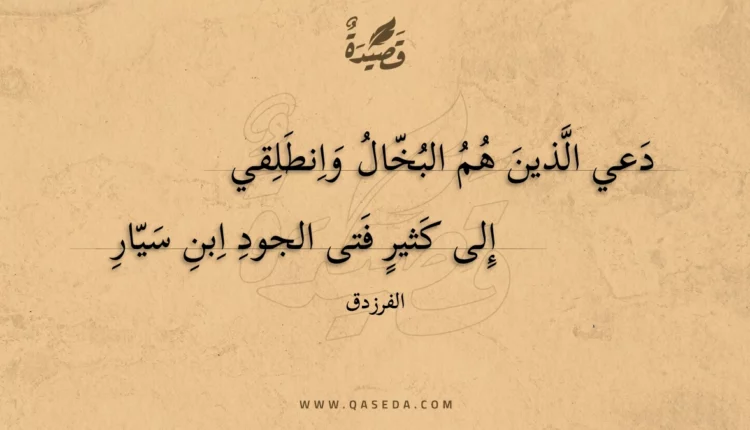 قَصِيدَةٌ
دَعي الَّذينَ هُمُ البُخّالُ وَاِنطَلِقي
إِلى كَثيرٍ فَتى الجودِ اِبنِ سَيّارِ
الفرزدق
WWW.QASEDA.COM